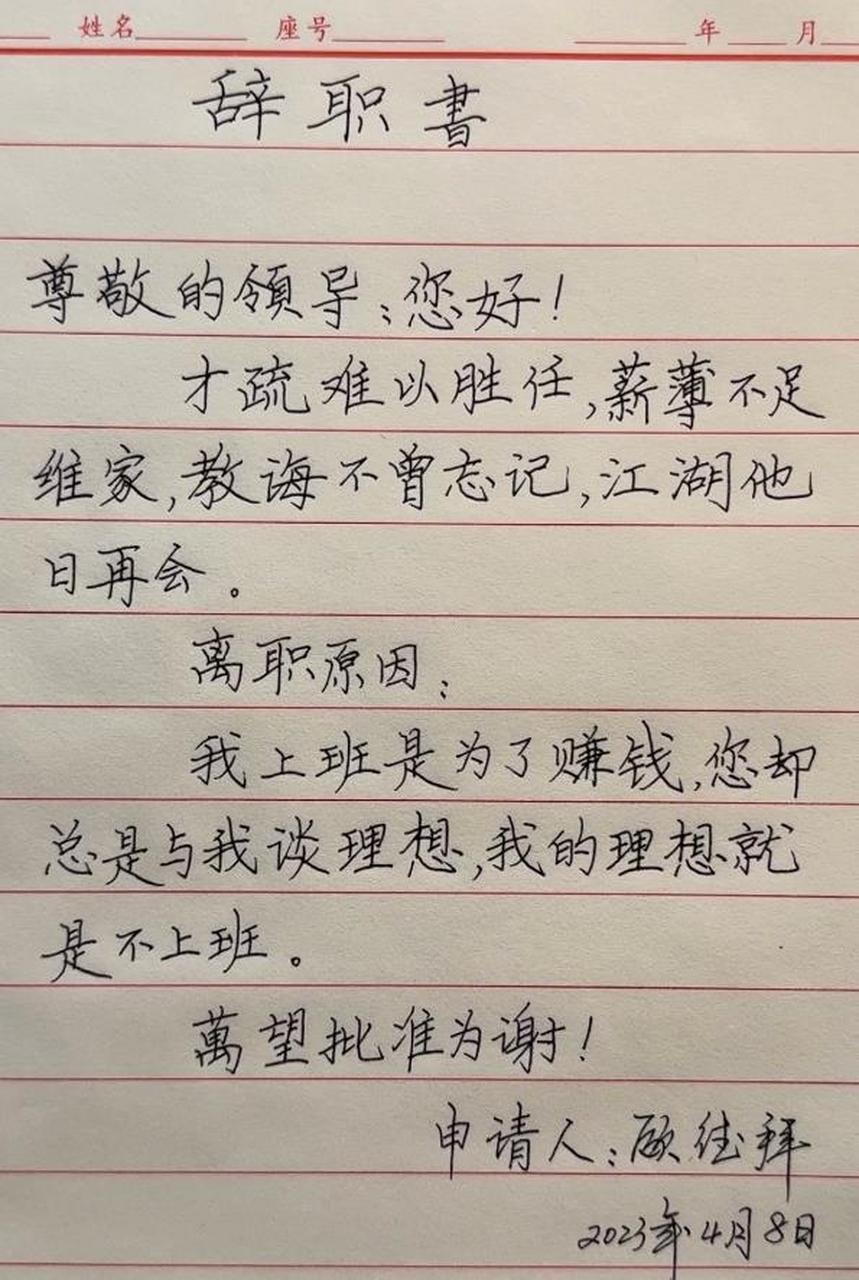 姓名 座号 年 月
辞职書
尊敬的領导：您好！
才疏难以胜任，薪薄不足
维家，教诲不曾忘记，江湖他
日再会。
离职原因：
我上班是为了赚钱，您却
总是与我谈理想，我的理想就
是不上班。
萬望批准为谢！
申请人：顾德拜
2023年4月8日